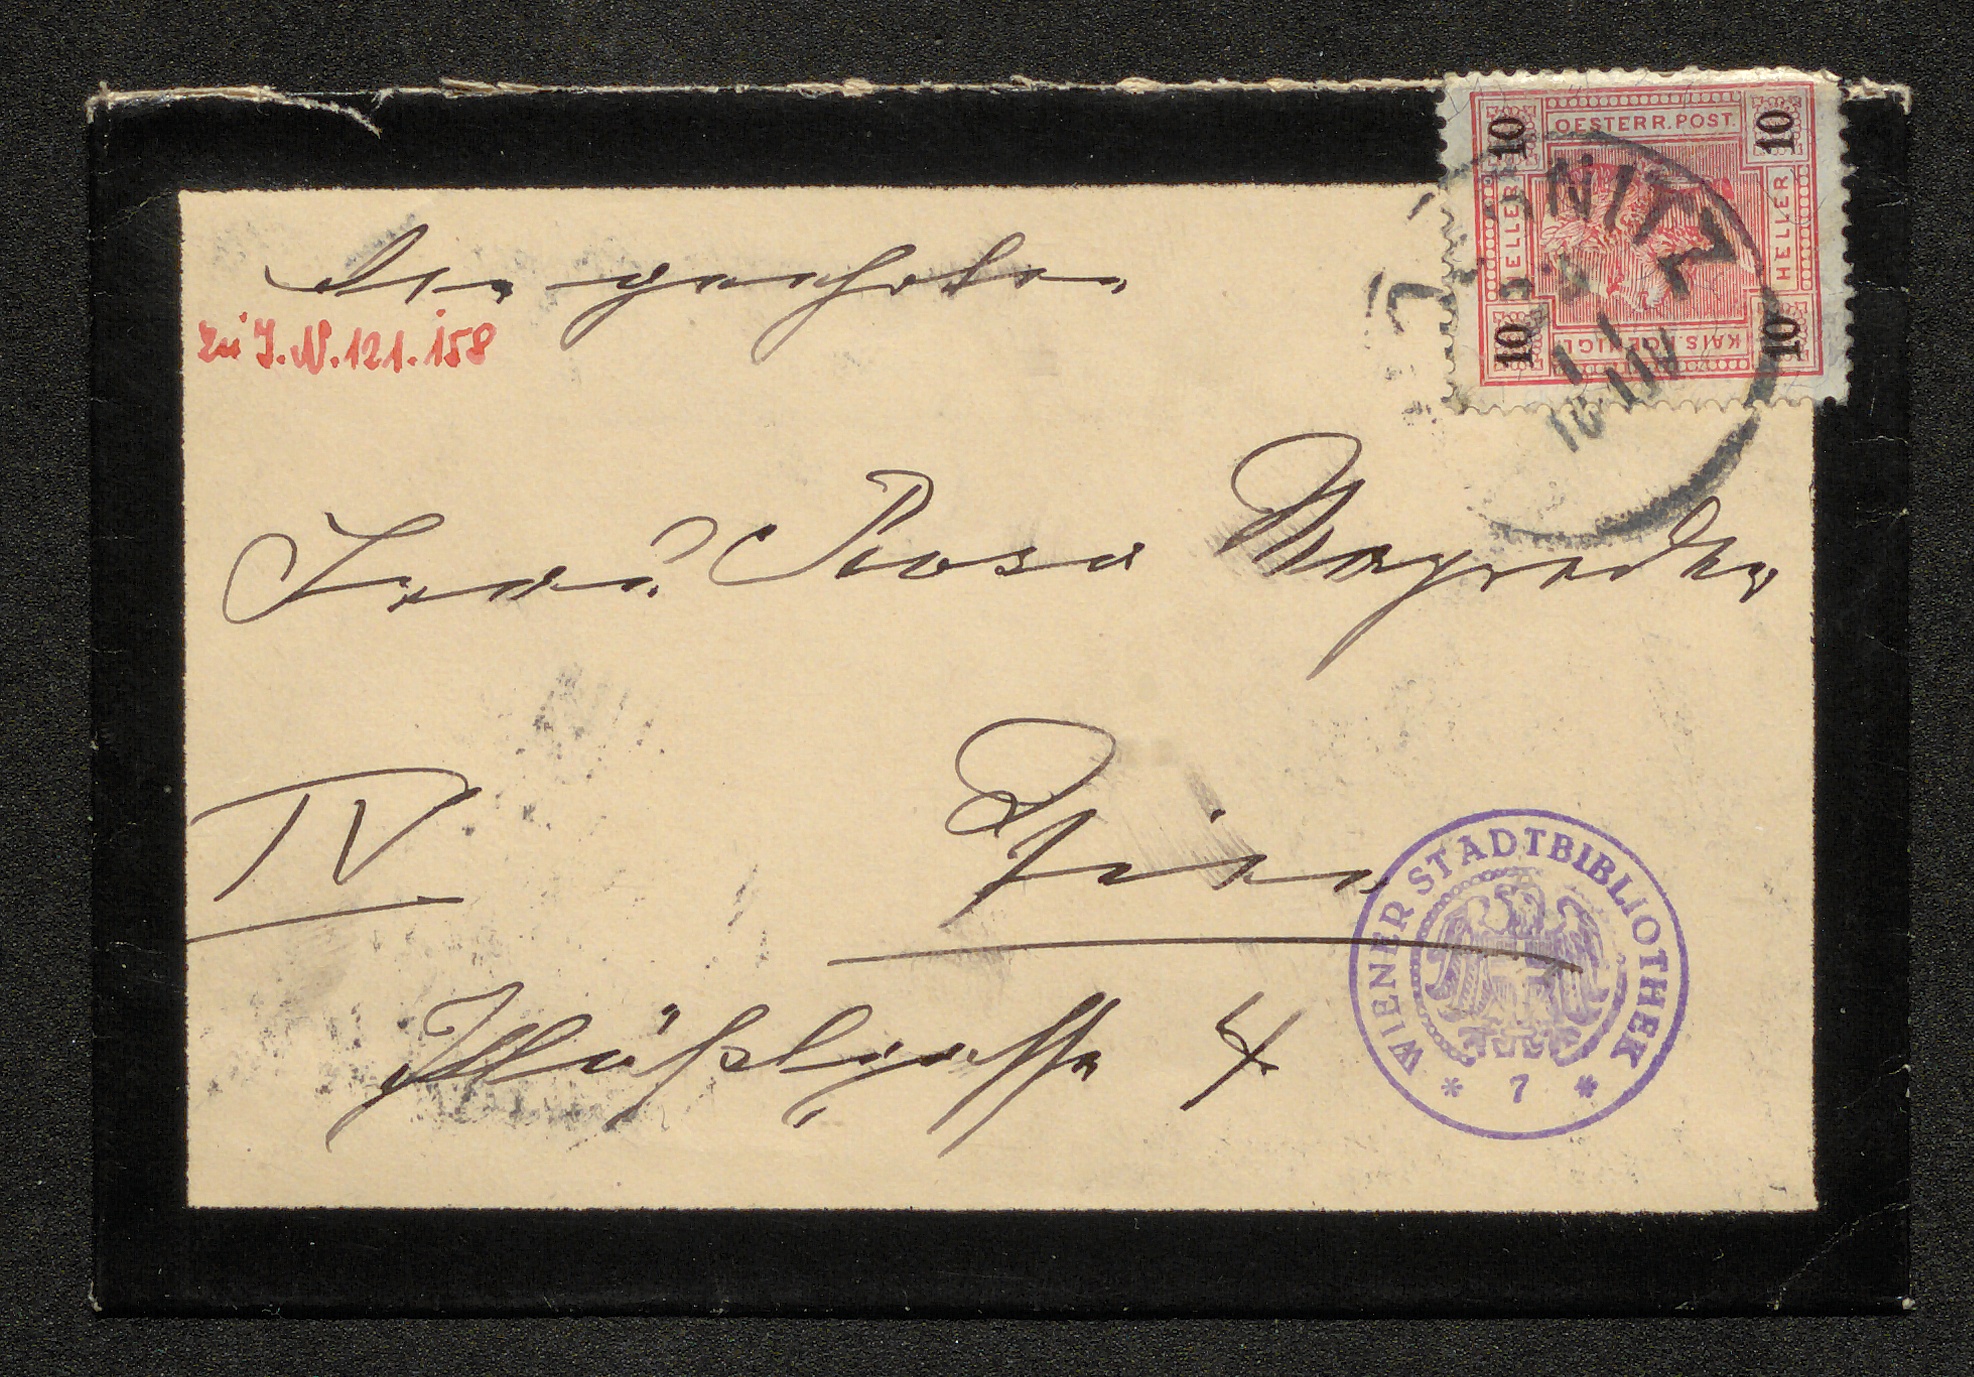 OESTERR. POST.
10 10
HELLER HELLER
10 10
KAIS. KOENIGL.
Zu I.N. 121.158
Frau Rosa Mayreder
IV Wien
Plößlgasse 4
WIENER STADTBIBLIOTHEK
* 7 *